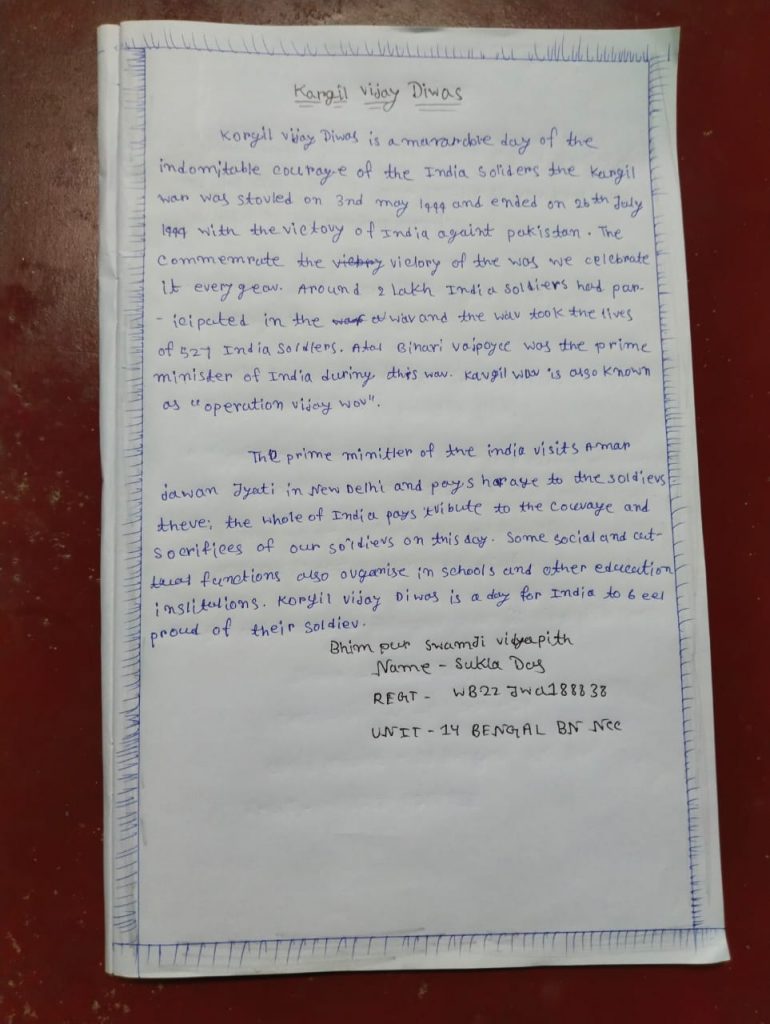 Kargil Vijay Diwas
Korgil vijay Diwas is a marardove day of the
indomitable courage of the India Soliders the Kargil
war was stovled on 3nd may 1999 and ended on 26th July
1999 with the victovy of India againt pakistan. The
commemrate the viclory of the was we celebrate
it every year. Around 2 lakh India Soldiers had par-
- icipated in the wav and the wav took the lives
of 527 India Soldlers. Atal Binari vajpayee was the prime
minister of India during this wav. Kavgil wav is also known
as "operation vijay wov".
The prime minitler of the india visits Amar
Jawan Jyati in New Delhi and pays haraye to the soldievs
theve; the whole of India pays tvibute to the couvaye and
Socrifices of our soldievs on this day. Some social and cut-
tural functions also ovganise in schools and other education
institutions. Korgil vijay Diwas is a day for India to 6eel
proud of their Soldiev.
Bhim pur Swamji vidyapith
Name - Sukla Das
REGT - WB22 JWA188838
UNIT - 14 BENGAL BN NCC